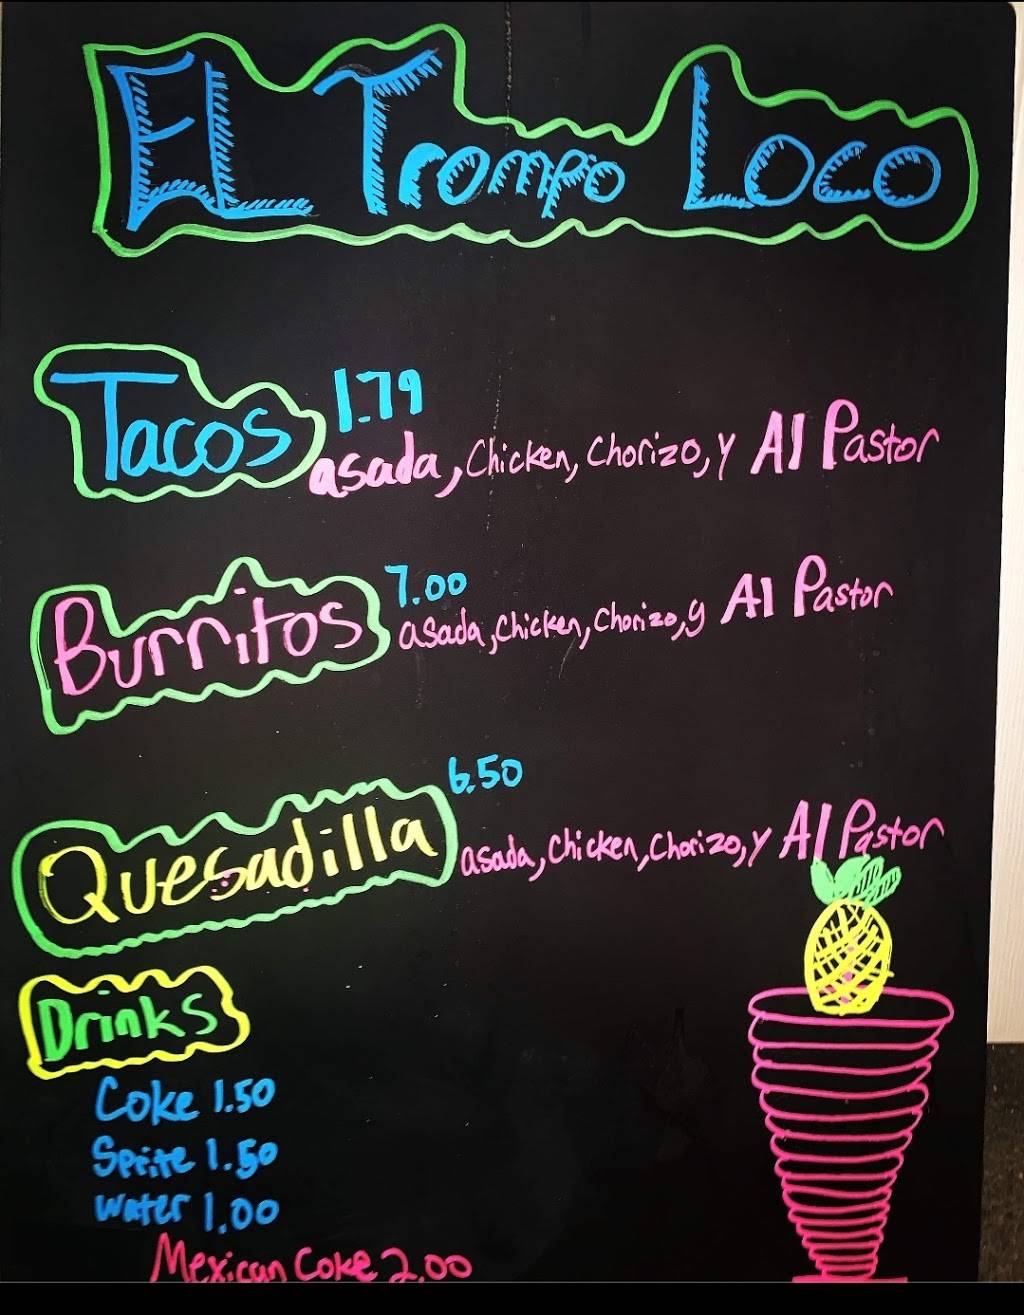 EL Trompo Loco
Tacos 1.79
asada, Chicken, Chorizo, y Al Pastor
Burritos 7.00
asada, Chicken, Chorizo, y Al Pastor
Quesadilla 6.50
asada, Chicken, Chorizo, y Al Pastor
Drinks
Coke 1.50
Sprite 1.50
Water 1.00
Mexican Coke 2.00